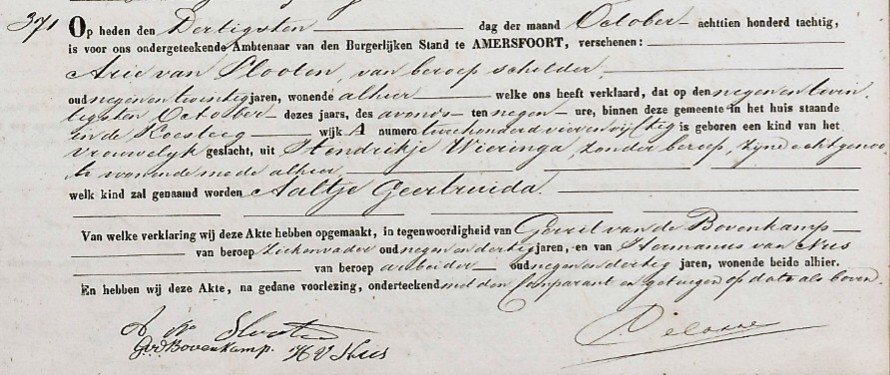 371 Op heden den Dertigsten dag der maand October achttien honderd tachtig,
is voor ons ondergeteekende Ambtenaar van den Burgerlijken Stand te AMERSFOORT, verschenen:
Arie van Slooten, van beroep schilder,
oud negen en twintig jaren, wonende alhier welke ons heeft verklaard, dat op den negen en twin
tigsten October dezes jaars, des avonds ten negen ure, binnen deze gemeente in het huis staande
in de Coesteeg wijk A numero tweehonderd vier en vijftig is geboren een kind van het
vrouwelyk geslacht, uit Hendrikje Wieringa, zonder beroep, zyne echtgenoo
te wonende mede alhier,
welk kind zal genaamd worden Aaltje Geertruida.
Van welke verklaring wij deze Akte hebben opgemaakt, in tegenwoordigheid van Gerrit van de Bovenkamp
van beroep ziekenvader oud negen en dertig jaren, en van Hermanus van Nus
van beroep arbeider oud negen en dertig jaren, wonende beide alhier.
En hebben wij deze Akte, na gedane voorlezing, onderteekend met den Comparant en getuigen op dato als boven.
A Slooten
GvdBovenkamp. H V Nus